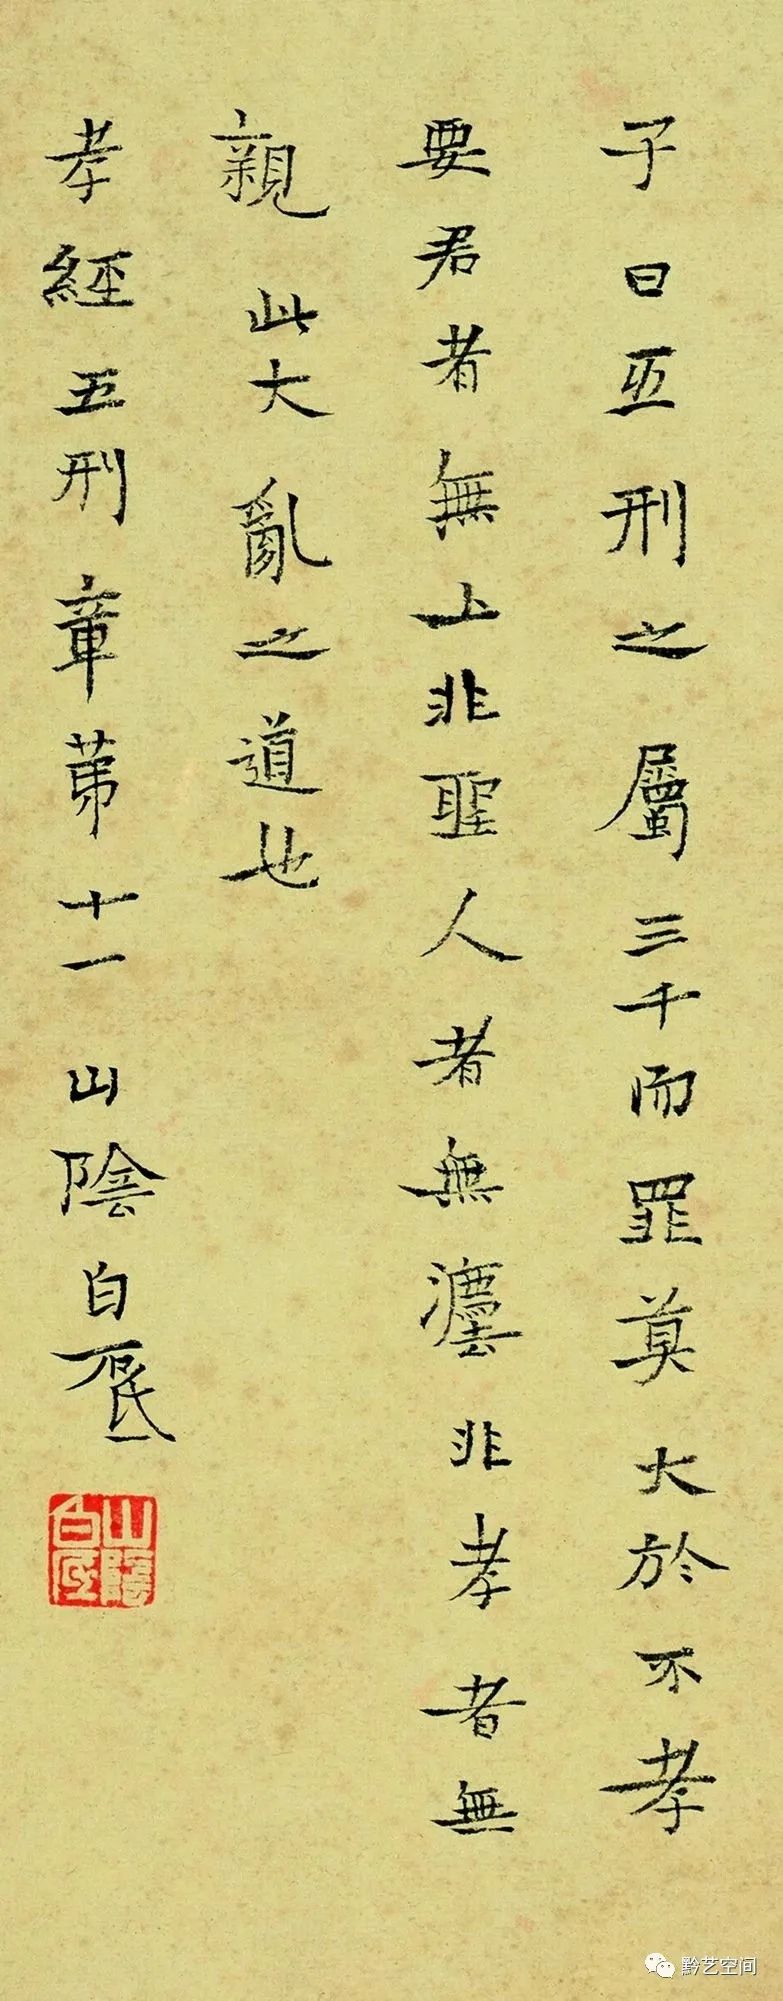 子曰五刑之屬三千而罪莫大於不孝
要君者無上非聖人者無灋非孝者無
親此大亂之道也
孝經五刑章苐十一山陰白砥
山陰白砥
黔艺空间